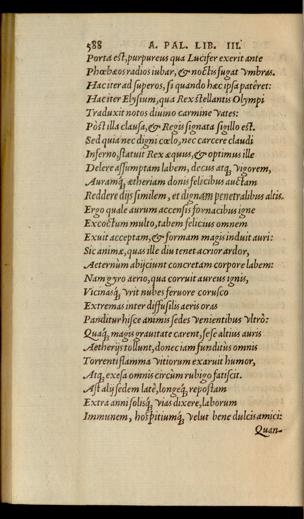 588 A. PAL. LIB. III.
Porta est, purpureus qua Lucifer exerit ante
Phœbæos radios iubar, & noctis fugat vmbras.
Hac iter ad superos, si quando hæc ipsa patêret:
Hac iter Elysium, qua Rex stellantis Olympi
Traduxit notos diuino carmine vates:
Pòst illa clausa, & Regis signata sigillo est.
Sed quia nec digni cœlo, nec carcere claudi
Inferno, statuit Rex æquus, & optimus ille
Delere assumptam labem, decus atq; vigorem,
Auramq; ætheriam donis felicibus auctam
Reddere dijs similem, et dignam penetralibus altis.
Ergo quale aurum accensis fornacibus igne
Excoctum multo, tabem felicius omnem
Exuit acceptam, & formam magis induit auri:
Sic animæ, quas ille diu tenet acrior ardor,
Aeternùm abijciunt concretam corpore labem:
Nam gyro aerio, qua corruit aureus ignis,
Vicinasq; vrit nubes feruore corusco
Extremas inter diffusilis aeris oras
Panditur hisce animis sedes venientibus vltrò:
Quæq; magis grauitate carent, sese altius auris
Aetherijs tollunt, donec iam funditùs omnis
Torrenti flamma vitiorum exaruit humor,
Atq; exesa omnis circùm rubigo fatiscit.
Ast alij sedem latè, longeq; repostam
Extra anni solisq; vias dixere, laborum
Immunem, hospitiumq; velut bene dulcis amici:
Quan-